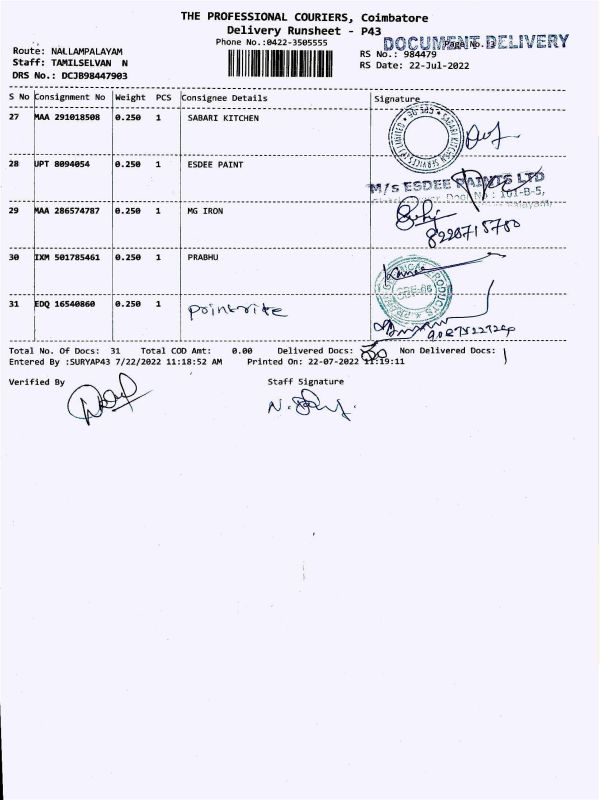 THE PROFESSIONAL COURIERS, Coimbatore
Delivery Runsheet - P43
Phone No.:0422-3505555
DOCUMENT DELIVERY
Page No.
Route: NALLAMPALAYAM
RS No.: 984479
Staff: TAMILSELVAN N
RS Date: 22-Jul-2022
DRS No.: DCJB98447903
S No Consignment No Weight PCS Consignee Details Signature
27 MAA 291018508 0.250 1 SABARI KITCHEN
28 UPT 8094054 0.250 1 ESDEE PAINT
M/s ESDEE PAINTS LTD
101-B-5,
29 MAA 286574787 0.250 1 MG IRON
8220715780
30 IXM 501785461 0.250 1 PRABHU
31 EDQ 16540860 0.250 1 pointrite
Total No. Of Docs: 31 Total COD Amt: 0.00 Delivered Docs: Non Delivered Docs: 1
Entered By :SURYAP43 7/22/2022 11:18:52 AM Printed On: 22-07-2022 11:19:11
Verified By Staff Signature